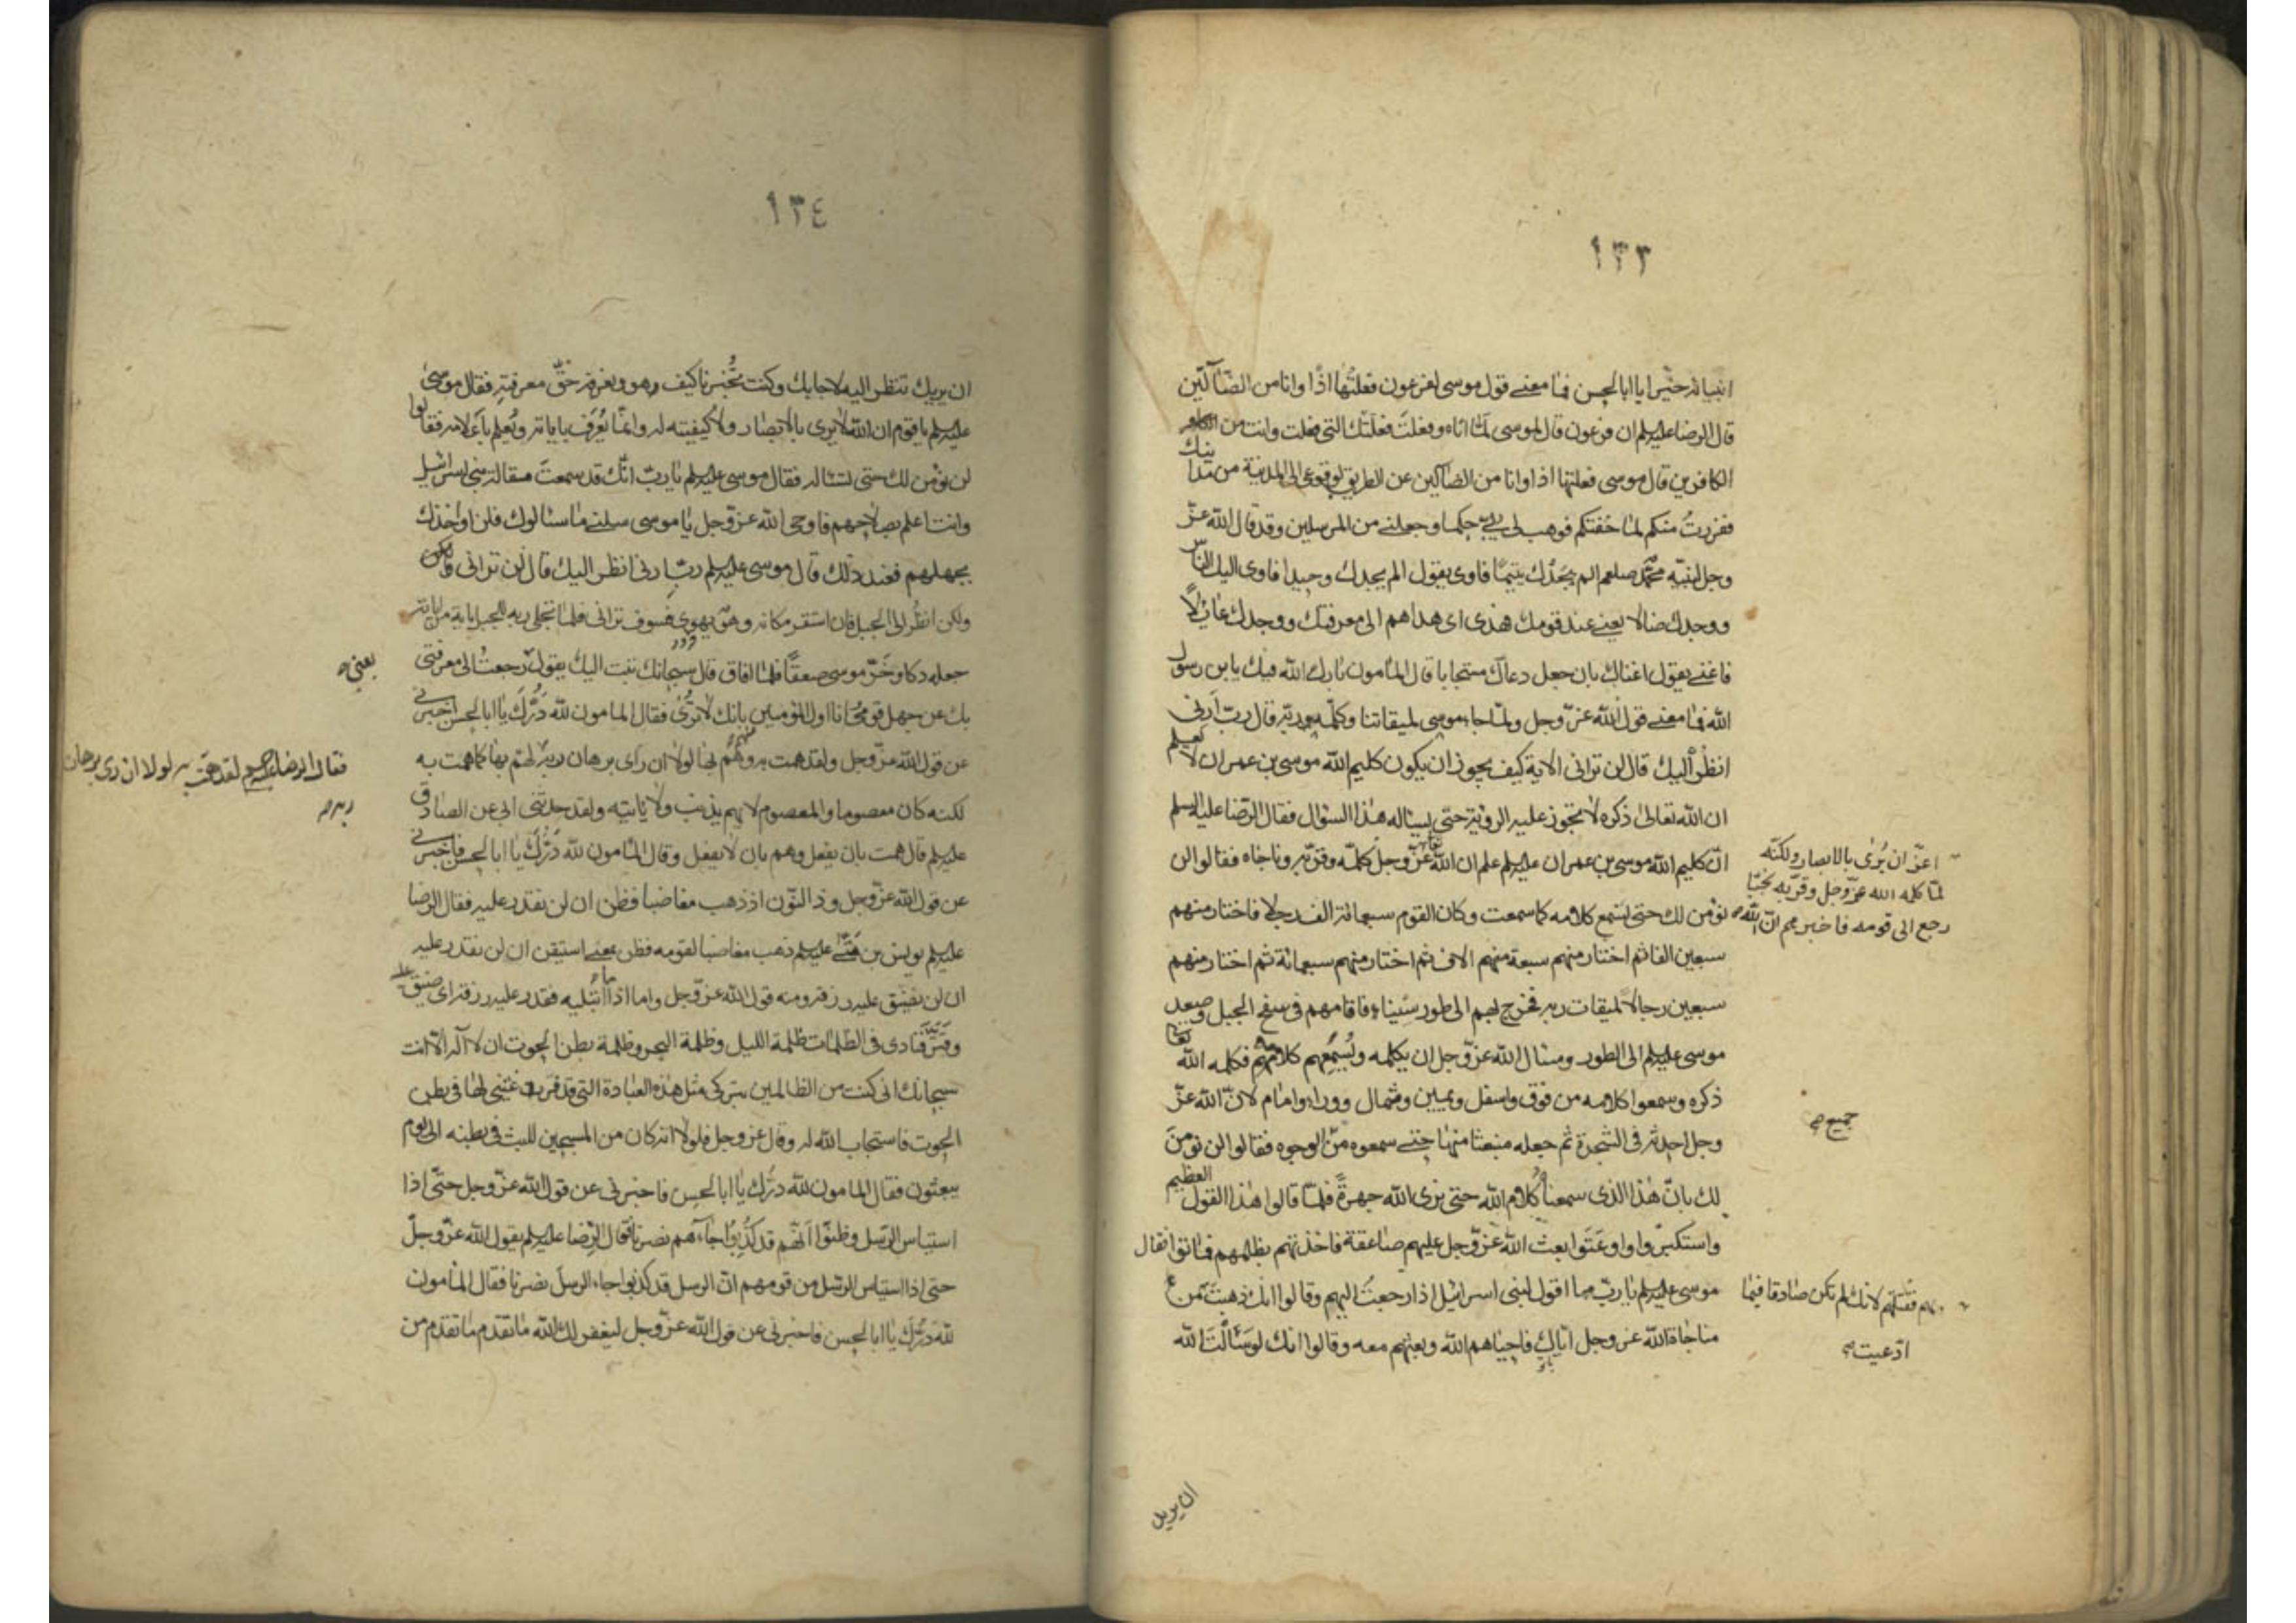 ١٣٣
انبيائه خيرا يا ابا الحسن فما معنى قول موسى لفرعون فعلتها اذا وانا من الضآلين
قال الرضا عليه السلم ان فرعون قال لموسى لما اتاه وفعلت فعلتك التي فعلت وانت من
الكافرين قال موسى فعلتها اذا وانا من الضالين عن الطريق لوقوعى الى المدينة من مدائنك
ففررت منكم لما خفتكم فوهب لى ربى حكما وجعلنى من المرسلين وقد قال الله عز
وجل لنبيه محمد صلعم الم يجدك يتيما فاوى يقول الم يجدك وحيدا فاوى اليك الناس
ووجدك ضالا يعنى عند قومك فهدى اى هداهم الى معرفتك ووجدك عائلا
فاغنى يقول اغناك بان جعل دعاك مستجابا قال المامون بارك الله فيك يا بن رسول
الله فما معنى قول الله عز وجل ولما جاء موسى لميقاتنا وكلمه ربه قال رب ارنى
انظر اليك قال لن ترانى الاية كيف يجوز ان يكون كليم الله موسى بن عمران لا يعلم
ان الله تعالى ذكره لا تجوز عليه الروية حتى يساله هذا السؤال فقال الرضا عليه السلم
ان كليم الله موسى بن عمران عليه السلم علم ان الله تعالى عز وجل كلمه وقربه وناجاه فقالوا لن
اعز ان يرى بالابصار ولكنه
لما كلمه الله عز وجل وقربه نجيا
رجع الى قومه فاخبرهم ان الله
نؤمن لك حتى نسمع كلامه كما سمعت وكان القوم سبعمائة الف رجلا فاختار منهم
سبعين الفا ثم اختار منهم سبعة منهم الاف ثم اختار منهم سبعمائة ثم اختار منهم
سبعين رجلا لميقات ربه فخرج بهم الى طور سيناء فاقامهم فى سفح الجبل وصعد
موسى عليه السلم الى الطور وسال الله عز وجل ان يكلمه ويسمعهم كلامه فكلمه الله تعالى
ذكره وسمعوا كلامه من فوق واسفل ويمين وشمال ووراء وامام لان الله عز
وجل احدثه فى الشجرة ثم جعله منبعثا منها حتى سمعوه من الوجوه فقالوا لن نومن
جميع صح
لك بان هذا الذى سمعناه كلام الله حتى نرى الله جهرة فلما قالوا هذا القول العظيم
واستكبروا وعتوا بعث الله عز وجل عليهم صاعقة فاخذتهم بظلمهم فماتوا فقال
موسى عليه السلم يا رب ما اقول لبنى اسرائيل اذا رجعت اليهم وقالوا انك ذهبت
بهم فقتلتهم لانك لم تكن صادقا فيما
ادعيت صح
مناجاة الله عز وجل اياك فاحياهم الله وبعثهم معه وقالوا انك لو سالت الله
ان يريك
١٣٤
ان يريك تنظر اليه لاجابك وكنت تخبرنا كيف هو ونعرفه حق معرفته فقال موسى
عليه السلم يا قوم ان الله لا يرى بالابصار ولا كيفيته له وانما يعرف باياته ويعلم باعلامه فقالوا
لن نؤمن لك حتى تساله فقال موسى عليه السلم يا رب انك قد سمعت مقالة بنى اسرائيل
وانت اعلم بصلاحهم فاوحى الله عز وجل يا موسى سلنى ما سالوك فلن اواخذك
بجهلهم فعند ذلك قال موسى عليه السلم رب ارنى انظر اليك قال لن ترانى ولكن
ولكن انظر الى الجبل فان استقر مكانه وهو يهوى فسوف ترانى فلما تجلى ربه للجبل باية من اياته
جعله دكا وخر موسى صعقا فلما افاق قال سبحانك تبت اليك يقول رجعت الى معرفتى
يعنى صح
بك عن جهل قومى وانا اول المؤمنين بانك لا ترى فقال المامون لله درك يا ابا الحسن اخبرنى
عن قول الله عز وجل ولقد همت به وهم بها لولا ان راى برهان ربه لهم بها كما همت به
فقال الرضا عليه السلم لقد همت به لولا ان رى برهان
ربه صح
لكنه كان معصوما والمعصوم لا يهم بذنب ولا ياتيه ولقد حدثنى ابى عن الصادق
عليه السلم قال همت بان يفعل وهم بان لا يفعل وقال المامون لله درك يا ابا الحسن فاخبرنى
عن قول الله عز وجل وذ النون اذ ذهب مغاضبا فظن ان لن نقدر عليه فقال الرضا
عليه السلم يونس بن متى عليه السلم ذهب مغاضبا لقومه فظن بمعنى استيقن ان لن نقدر عليه
ان لن نضيق عليه رزقه ومنه قول الله عز وجل واما اذا ما ابتليه فقدر عليه رزقه اى ضيق عليه
وقتر فنادى فى الظلمات ظلمة الليل وظلمة البحر وظلمة بطن الحوت ان لا اله الا انت
سبحانك انى كنت من الظالمين بتركى مثل هذه العبادة التى قد فرغتنى لها فى بطن
الحوت فاستجاب الله له وقال عز وجل فلولا انه كان من المسبحين للبث فى بطنه الى يوم
يبعثون فقال المامون لله درك يا ابا الحسن فاخبرنى عن قول الله عز وجل حتى اذا
استياس الرسل وظنوا انهم قد كذبوا جاءهم نصرنا قال الرضا عليه السلم يقول الله عز وجل
حتى اذا استياس الرسل من قومهم ان الرسل قد كذبوا جاء الرسل نصرنا فقال المامون
لله درك يا ابا الحسن فاخبرنى عن قول الله عز وجل ليغفر لك الله ما تقدم ما تقدم من